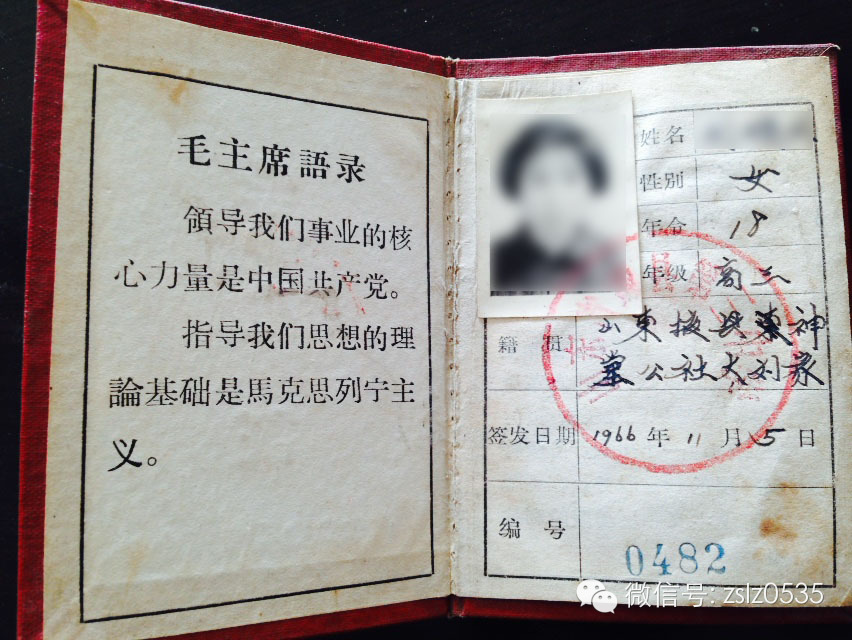 毛主席語录
領导我们事业的核
心力量是中国共产党。
指导我们思想的理
論基础是馬克思列宁主
义。
姓名
性别 女
年令 18
年级 高三
籍贯 山東掖县東神
堂公社大刘家
签发日期 1966年11月15日
编号 0482
微信号: zslz0535